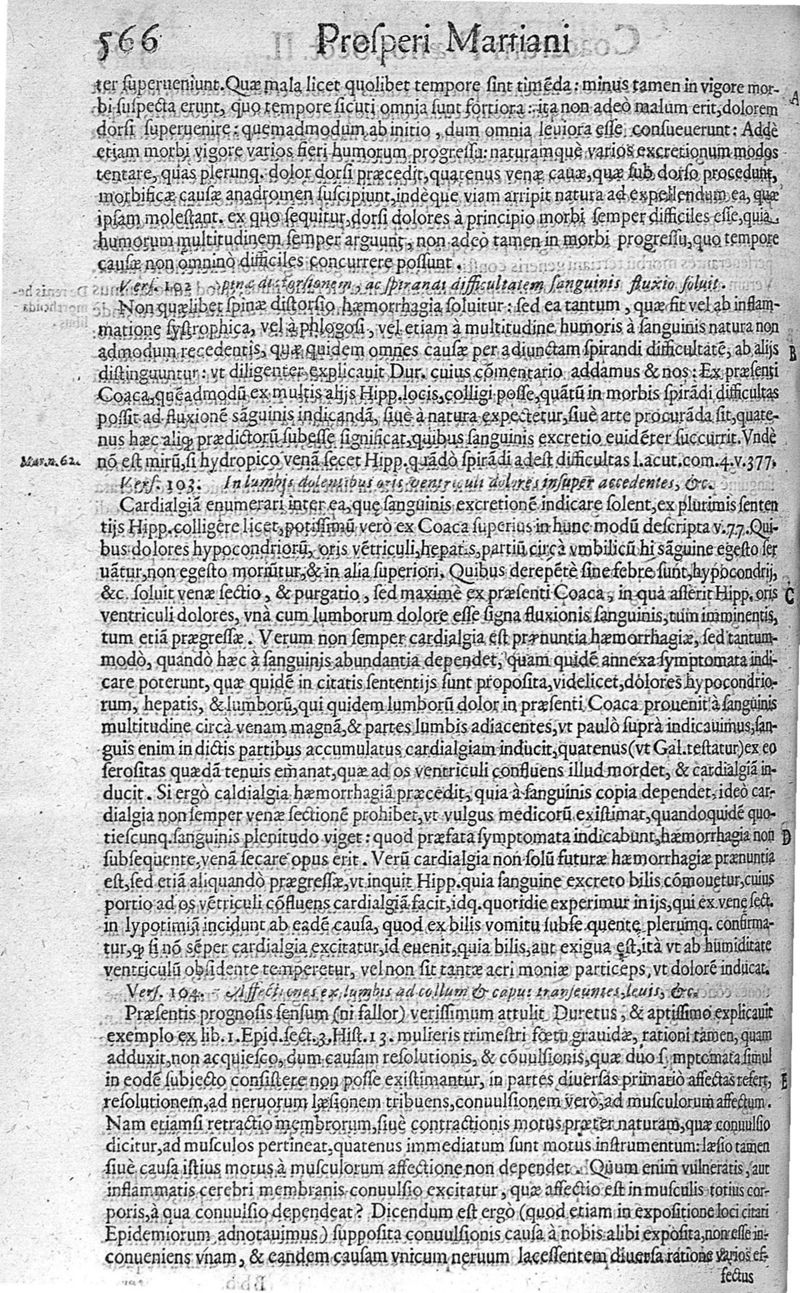 566 Prosperi Martiani
ter superueniunt. Quæ mala licet quolibet tempore sint timẽda: minus tamen in vigore mor-
bi suspecta erunt, quo tempore sicuti omnia sunt fortiora: ita non adeò malum erit, dolorem
dorsi superuenire: quemadmodum ab initio, dum omnia leuiora esse consueuerunt: Addè
etiam morbi vigore varios fieri humorum progressu: naturamquè varios excretionum modos
tentare, quas plerunq. dolor dorsi præcedit, quatenus venæ cauæ, quæ sub dorso procedunt,
morbificæ causæ anadromen suscipiunt, indèque viam arripit natura ad expellendum ea, quæ
ipsam molestant. ex quo sequitur, dorsi dolores à principio morbi semper difficiles esse, quia
humorum multitudinem semper arguunt, non adeo tamen in morbi progressu, quo tempore
causæ non omnino difficiles concurrere possunt.
Vers. 102 Spinæ distorsionem, ac spirandi difficultatem sanguinis fluxio soluit.
Non quælibet spinæ distorsio hæmorrhagia soluitur: sed ea tantum, quæ fit vel ab inflam-
matione systrophica, vel à phlogosi, vel etiam à multitudine humoris à sanguinis natura non
admodum recedentis, quæ quidem omnes causæ per adiunctam spirandi difficultatẽ, ab alijs
distinguuntur: vt diligenter explicauit Dur. cuius cõmentario addamus & nos: Ex præsenti
Coaca, quẽadmodũ ex multis alijs Hipp. locis, colligi posse, quãtũ in morbis spirãdi difficultas
possit ad fluxionẽ sãguinis indicandã, siuè à natura expectetur, siuè arte procurãda sit, quate-
nus hæc aliq̃ prædictorũ subesse significat, quibus sanguinis excretio euidẽter succurrit. Vndè
nõ est mirũ, si hydropico venã secet Hipp. quãdò spirãdi adest difficultas l. acut. com. 4. v. 377.
Mar. n. 62.
Vers. 103. In lumbis dolentibus oris ventriculi dolores insuper accedentes, &c.
Cardialgiã enumerari inter ea, quę sanguinis excretionẽ indicare solent, ex plurimis senten
tijs Hipp. colligere licet, potissimũ verò ex Coaca superius in hunc modũ descripta v. 77. Qui-
bus dolores hypocondriorũ, oris vẽtriculi, hepatis, partiũ circà vmbilicũ hi sãguine egesto ser
uãtur, non egesto moriũtur, & in alia superiori. Quibus derepẽtè sine febre sunt, hypocondrij,
&c. soluit venæ sectio, & purgatio, sed maximè ex præsenti Coaca, in quà asserit Hipp. oris
ventriculi dolores, vnà cum lumborum dolore esse signa fluxionis sanguinis, tùm imminentis,
tum etiã prægressæ. Verum non semper cardialgia est prænuntia hæmorrhagiæ, sed tantum-
modò, quandò hæc à sanguinis abundantia dependet, quam quidẽ annexa symptomata indi-
care poterunt, quæ quidẽ in citatis sententijs sunt proposita, videlicet, dolores hypocondrio-
rum, hepatis, & lumborũ, qui quidem lumborũ dolor in præsenti Coaca prouenit à sanguinis
multitudine circà venam magnã, & partes lumbis adiacentes, vt paulò suprà indicauimus, san-
guis enim in dictis partibus accumulatus cardialgiam inducit, quatenus (vt Gal. testatur) ex eo
serositas quædã tenuis emanat, quæ ad os ventriculi confluens illud mordet, & cardialgiã in-
ducit. Si ergò caldialgia hæmorrhagiã præcedit, quia à sanguinis copia dependet, ideò car-
dialgia non semper venæ sectionẽ prohibet, vt vulgus medicorũ existimat, quandoquidẽ quo-
tiescunq. sanguinis plenitudo viget: quod præfata symptomata indicabunt, hæmorrhagia non
subsequente, venã secare opus erit. Verũ cardialgia non solũ futuræ hæmorrhagiæ prænuntia
est, sed etiã aliquandò prægressæ, vt inquit Hipp. quia sanguine excreto bilis cõmouetur, cuius
portio ad os vẽtriculi cõfluens cardialgiã facit, idq. quotidie experimur in ijs, qui ex venę sect.
in lypotimiã incidunt ab eadẽ causa, quod ex bilis vomitu subsequente plerunq. confirma-
tur, q̃ si nõ sẽper cardialgia excitatur, id euenit, quia bilis, aut exigua est, ità vt ab humiditate
ventriculũ obsidente temperetur, vel non sit tantæ acrimoniæ particeps, vt dolorẽ inducat.
Vers. 104. Affectiones ex lumbis ad collum & caput transeuntes, leuis, &c.
Præsentis prognosis sensum (ni fallor) verissimum attulit Duretus, & aptissimo explicauit
exemplo ex lib. 1. Epid. sect. 3. Hist. 13. mulieris trimestri fœtu grauidæ, rationi tamen, quam
adduxit, non acquiesco, dum causam resolutionis, & cõuulsionis, quæ duo symptomata simul
in eodẽ subiecto consistere non posse existimantur, in partes diuersas primariò affectas refert,
resolutionem, ad neruorum læsionem tribuens, conuulsionem verò, ad musculorum affectum.
Nam etiamsi retractio membrorum, siuè contractionis motus præter naturam, quæ conuulsio
dicitur, ad musculos pertineat, quatenus immediatum sunt motus instrumentum: læsio tamen
siuè causa istius motus à musculorum affectione non dependet. Quum enim vulneratis, aut
inflammatis cerebri membranis conuulsio excitatur, quæ affectio est in musculis totius cor-
poris, à qua conuulsio dependeat? Dicendum est ergò (quod etiam in expositione loci citati
Epidemiorum adnotauimus) supposita conuulsionis causa à nobis alibi exposita, non esse in-
conueniens vnam, & eandem causam vnicum neruum lacessentem diuersa ratione varios ef-
fectus
A
B
C
D
E